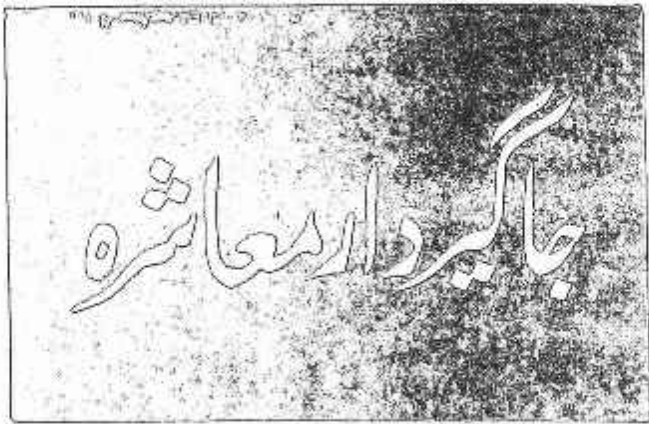 جاگیردار معاشرہ